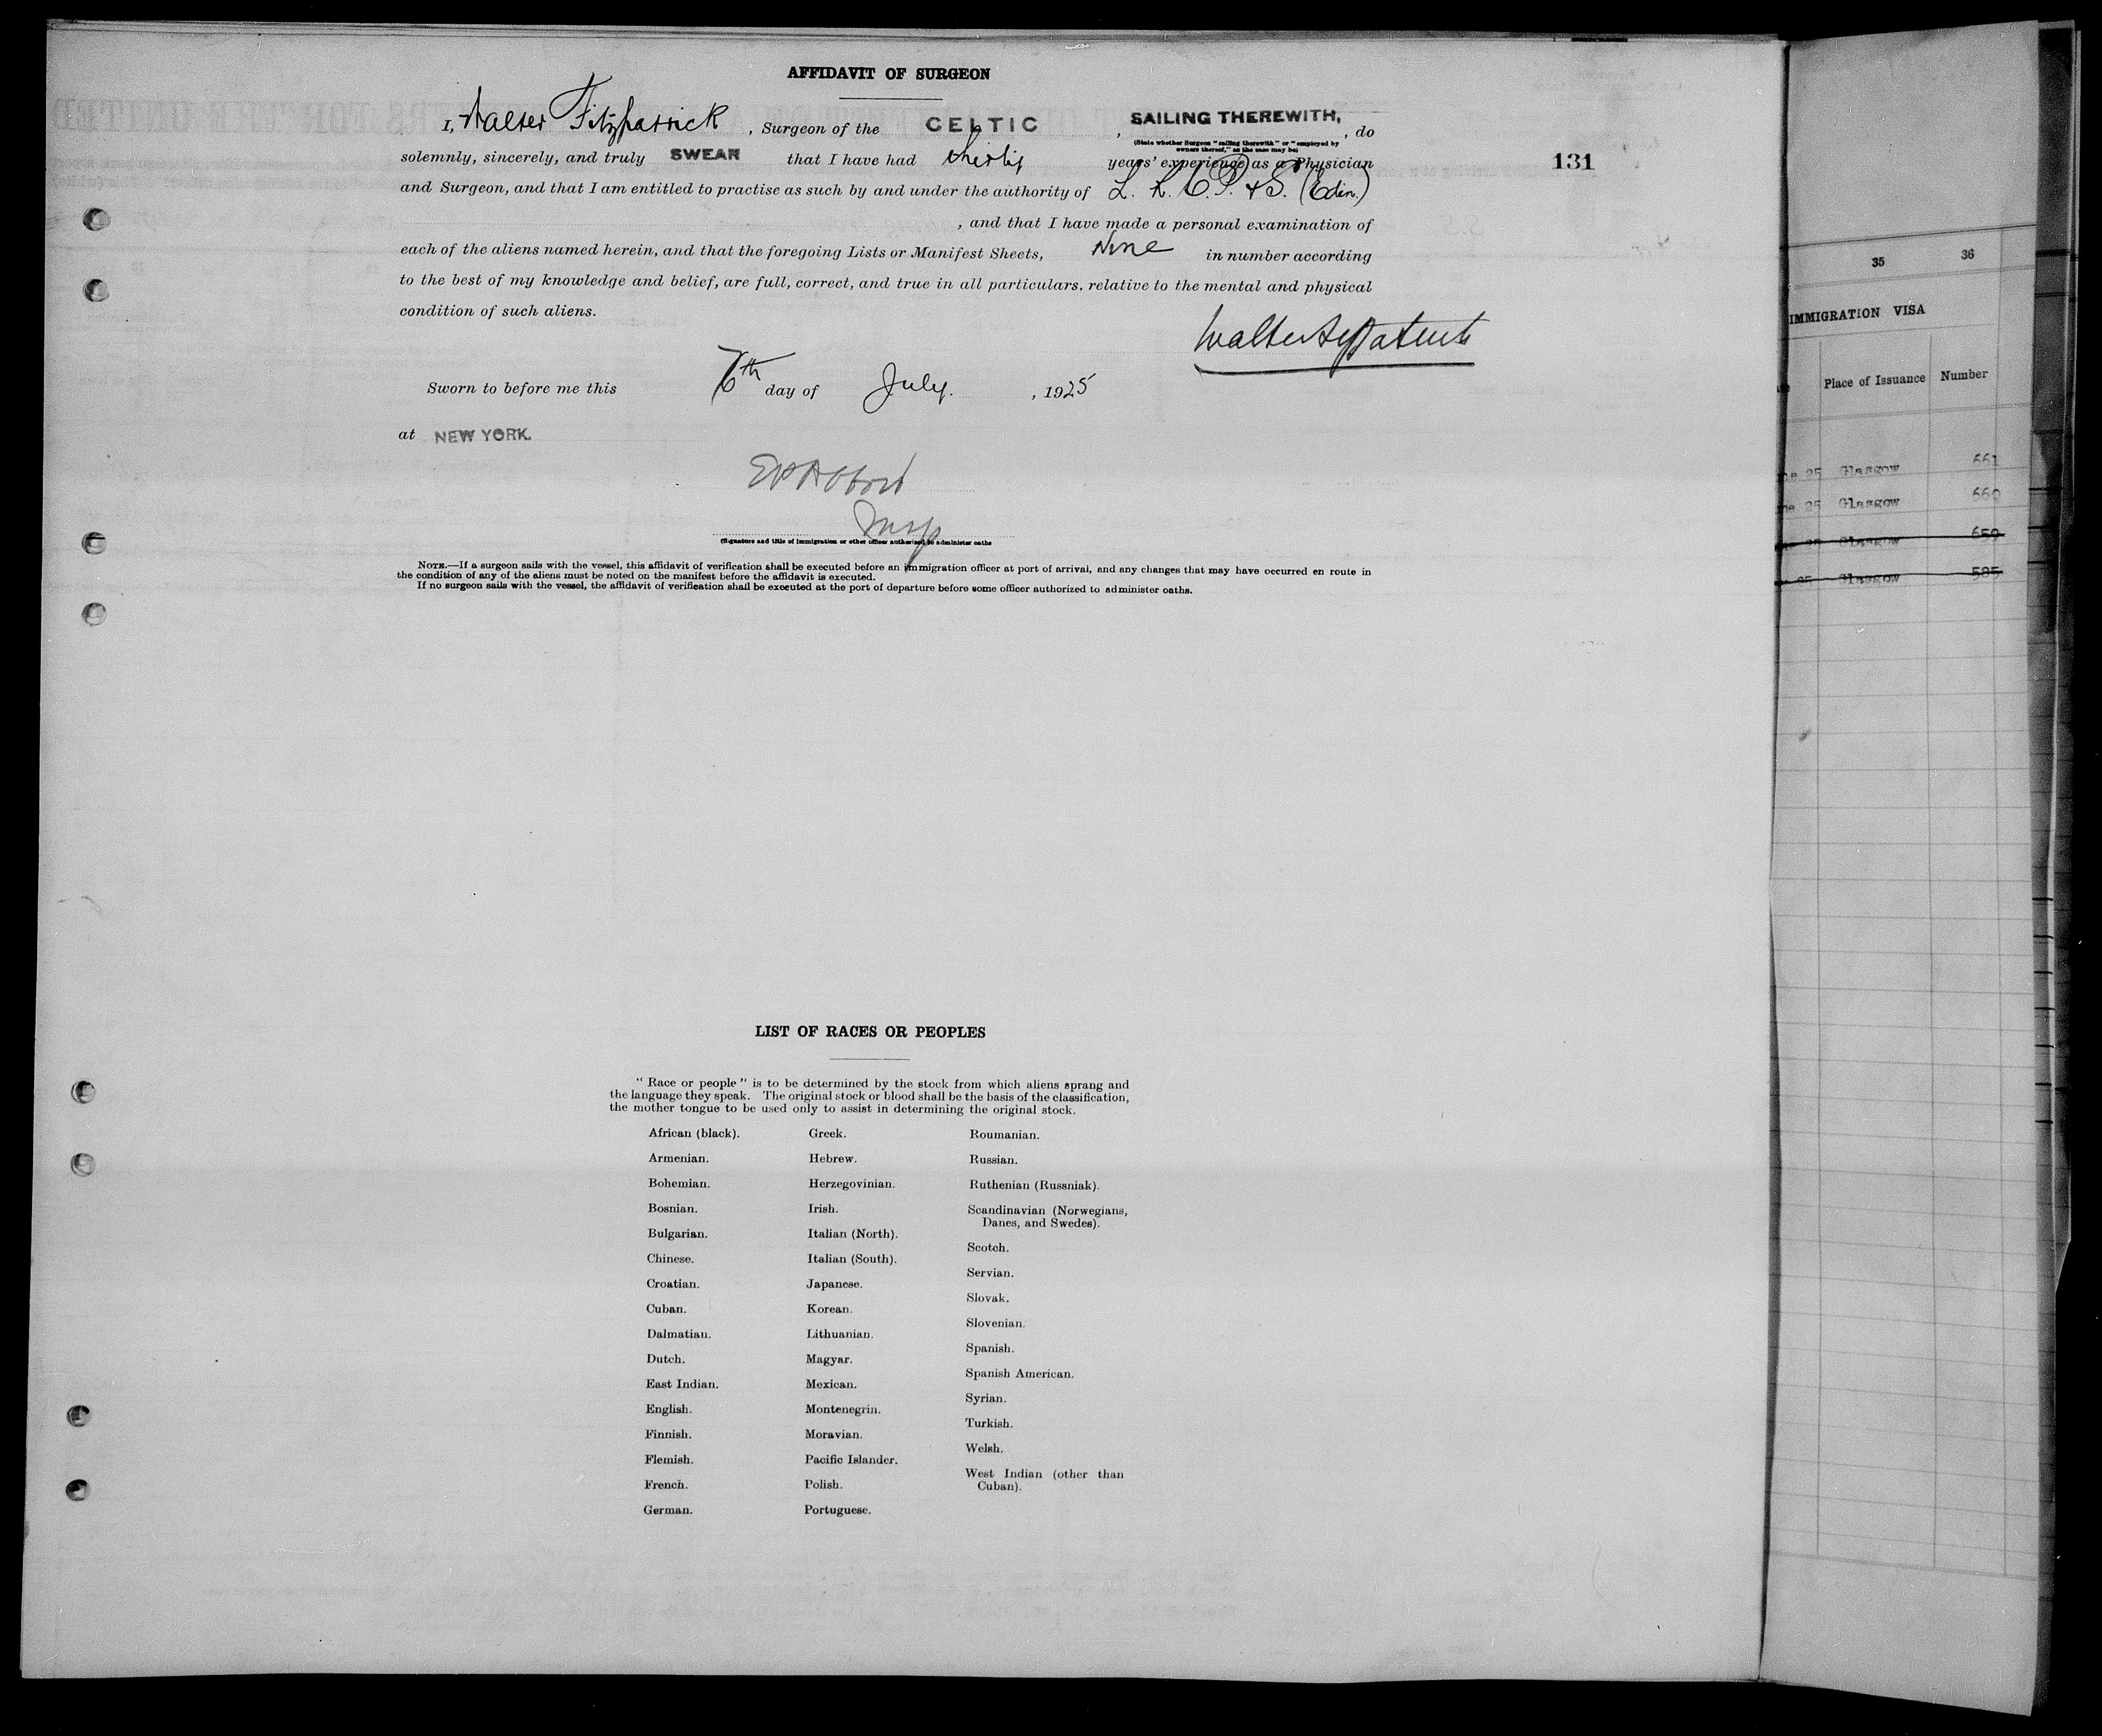 AFFIDAVIT OF SURGEON
I, Walter Fitzpatrick, Surgeon of the CELTIC, SAILING THEREWITH, , do
(State whether Surgeon "sailing therewith" or "employed by
owners thereof," as the case may be)
solemnly, sincerely, and truly SWEAR that I have had thirty years' experience as a Physician
131
and Surgeon, and that I am entitled to practise as such by and under the authority of L. R. C. P. & S. (Edin.)
, and that I have made a personal examination of
each of the aliens named herein, and that the foregoing Lists or Manifest Sheets, Nine in number according
to the best of my knowledge and belief, are full, correct, and true in all particulars, relative to the mental and physical
condition of such aliens.
Walter Fitzpatrick
Sworn to before me this 6th day of July. , 1925
at NEW YORK.
Insp
(Signature and title of immigration or other officer authorized to administer oaths
NOTE.—If a surgeon sails with the vessel, this affidavit of verification shall be executed before an immigration officer at port of arrival, and any changes that may have occurred en route in
the condition of any of the aliens must be noted on the manifest before the affidavit is executed.
If no surgeon sails with the vessel, the affidavit of verification shall be executed at the port of departure before some officer authorized to administer oaths.
LIST OF RACES OR PEOPLES
"Race or people" is to be determined by the stock from which aliens sprang and
the language they speak. The original stock or blood shall be the basis of the classification,
the mother tongue to be used only to assist in determining the original stock.
African (black).
Armenian.
Bohemian.
Bosnian.
Bulgarian.
Chinese.
Croatian.
Cuban.
Dalmatian.
Dutch.
East Indian.
English.
Finnish.
Flemish.
French.
German.
Greek.
Hebrew.
Herzegovinian.
Irish.
Italian (North).
Italian (South).
Japanese.
Korean.
Lithuanian.
Magyar.
Mexican.
Montenegrin.
Moravian.
Pacific Islander.
Polish.
Portuguese.
Roumanian.
Russian.
Ruthenian (Russniak).
Scandinavian (Norwegians,
Danes, and Swedes).
Scotch.
Servian.
Slovak.
Slovenian.
Spanish.
Spanish American.
Syrian.
Turkish.
Welsh.
West Indian (other than
Cuban).
35 36
IMMIGRATION VISA
Place of Issuance Number
25 Glasgow 661
25 Glasgow 660
25 Glasgow 659
25 Glasgow 585